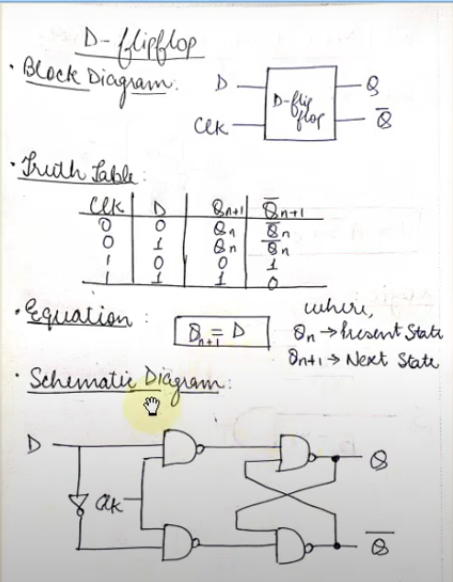 D-flipflop
• Block Diagram:
D
Q
D-flip
flop
Clk
Q̅
• Truth Table:
Clk D Qn+1 Q̅n+1
0 0 Qn Q̅n
0 1 Qn Q̅n
1 0 0 1
1 1 1 0
• Equation : Qn+1 = D
where,
Qn → Present State
Qn+1 → Next State
• Schematic Diagram:
D
Q
Clk
Q̅